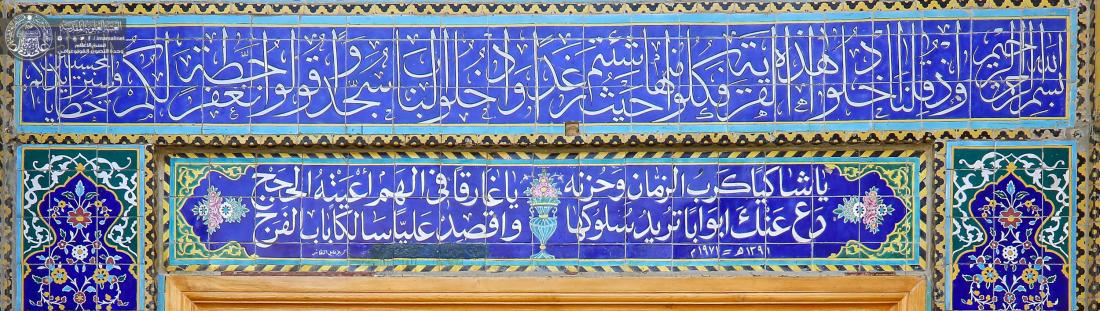 بسم الله الرحمن الرحيم وإذ قلنا ادخلوا هذه القرية فكلوا منها حيث شئتم رغدا وادخلوا الباب سجدا وقولوا حطة نغفر لكم خطاياكم وسنزيد المحسنين
يا شاكيا كرب الزمان وحزنه يا غارقا في الهم اعيته الحجج
دع عنك ابوابا تريد سلوكها واقصد عليا سالكا باب الفرج
١٣٩١ هـ = ١٩٧١ م